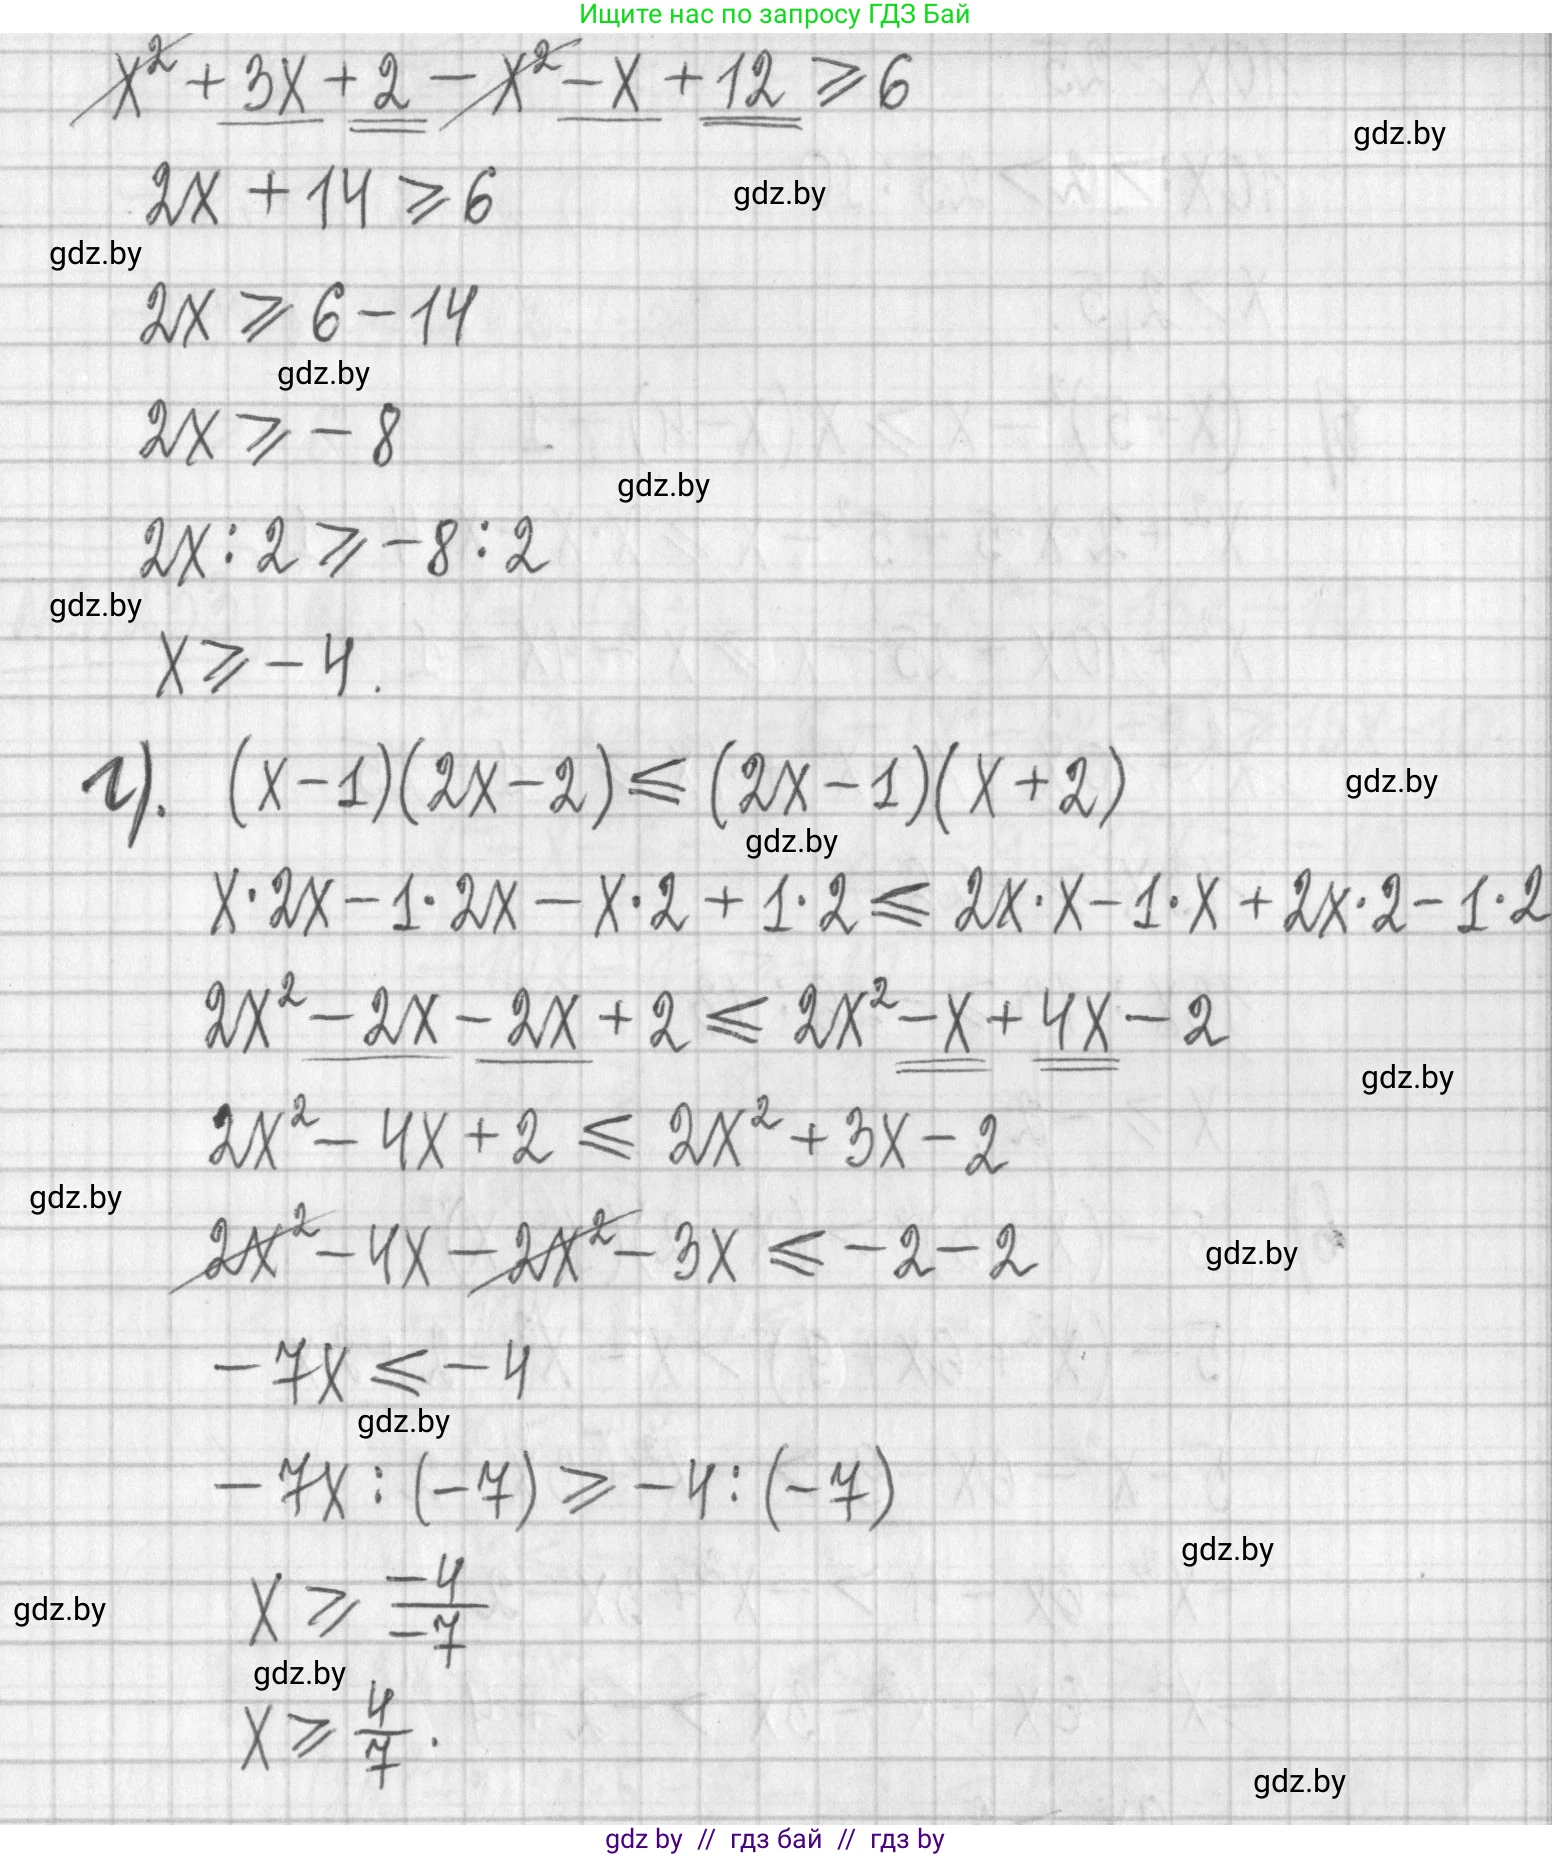 Ищите нас по запросу ГДЗ Бай
x² + 3x + 2 - x² - x + 12 ⩾ 6
gdz.by
2x + 14 ⩾ 6
gdz.by
gdz.by
2x ⩾ 6 - 14
gdz.by
2x ⩾ - 8
gdz.by
2x : 2 ⩾ - 8 : 2
gdz.by
x ⩾ - 4.
г). (x - 1)(2x - 2) ⩽ (2x - 1)(x + 2)
gdz.by
gdz.by
x · 2x - 1 · 2x - x · 2 + 1 · 2 ⩽ 2x · x - 1 · x + 2x · 2 - 1 · 2
2x² - 2x - 2x + 2 ⩽ 2x² - x + 4x - 2
gdz.by
2x² - 4x + 2 ⩽ 2x² + 3x - 2
gdz.by
2x² - 4x - 2x² - 3x ⩽ - 2 - 2
gdz.by
- 7x ⩽ - 4
gdz.by
- 7x : (- 7) ⩾ - 4 : (- 7)
gdz.by
x ⩾ -4/-7
gdz.by
gdz.by
x ⩾ 4/7.
gdz.by
gdz by // гдз бай // гдз by